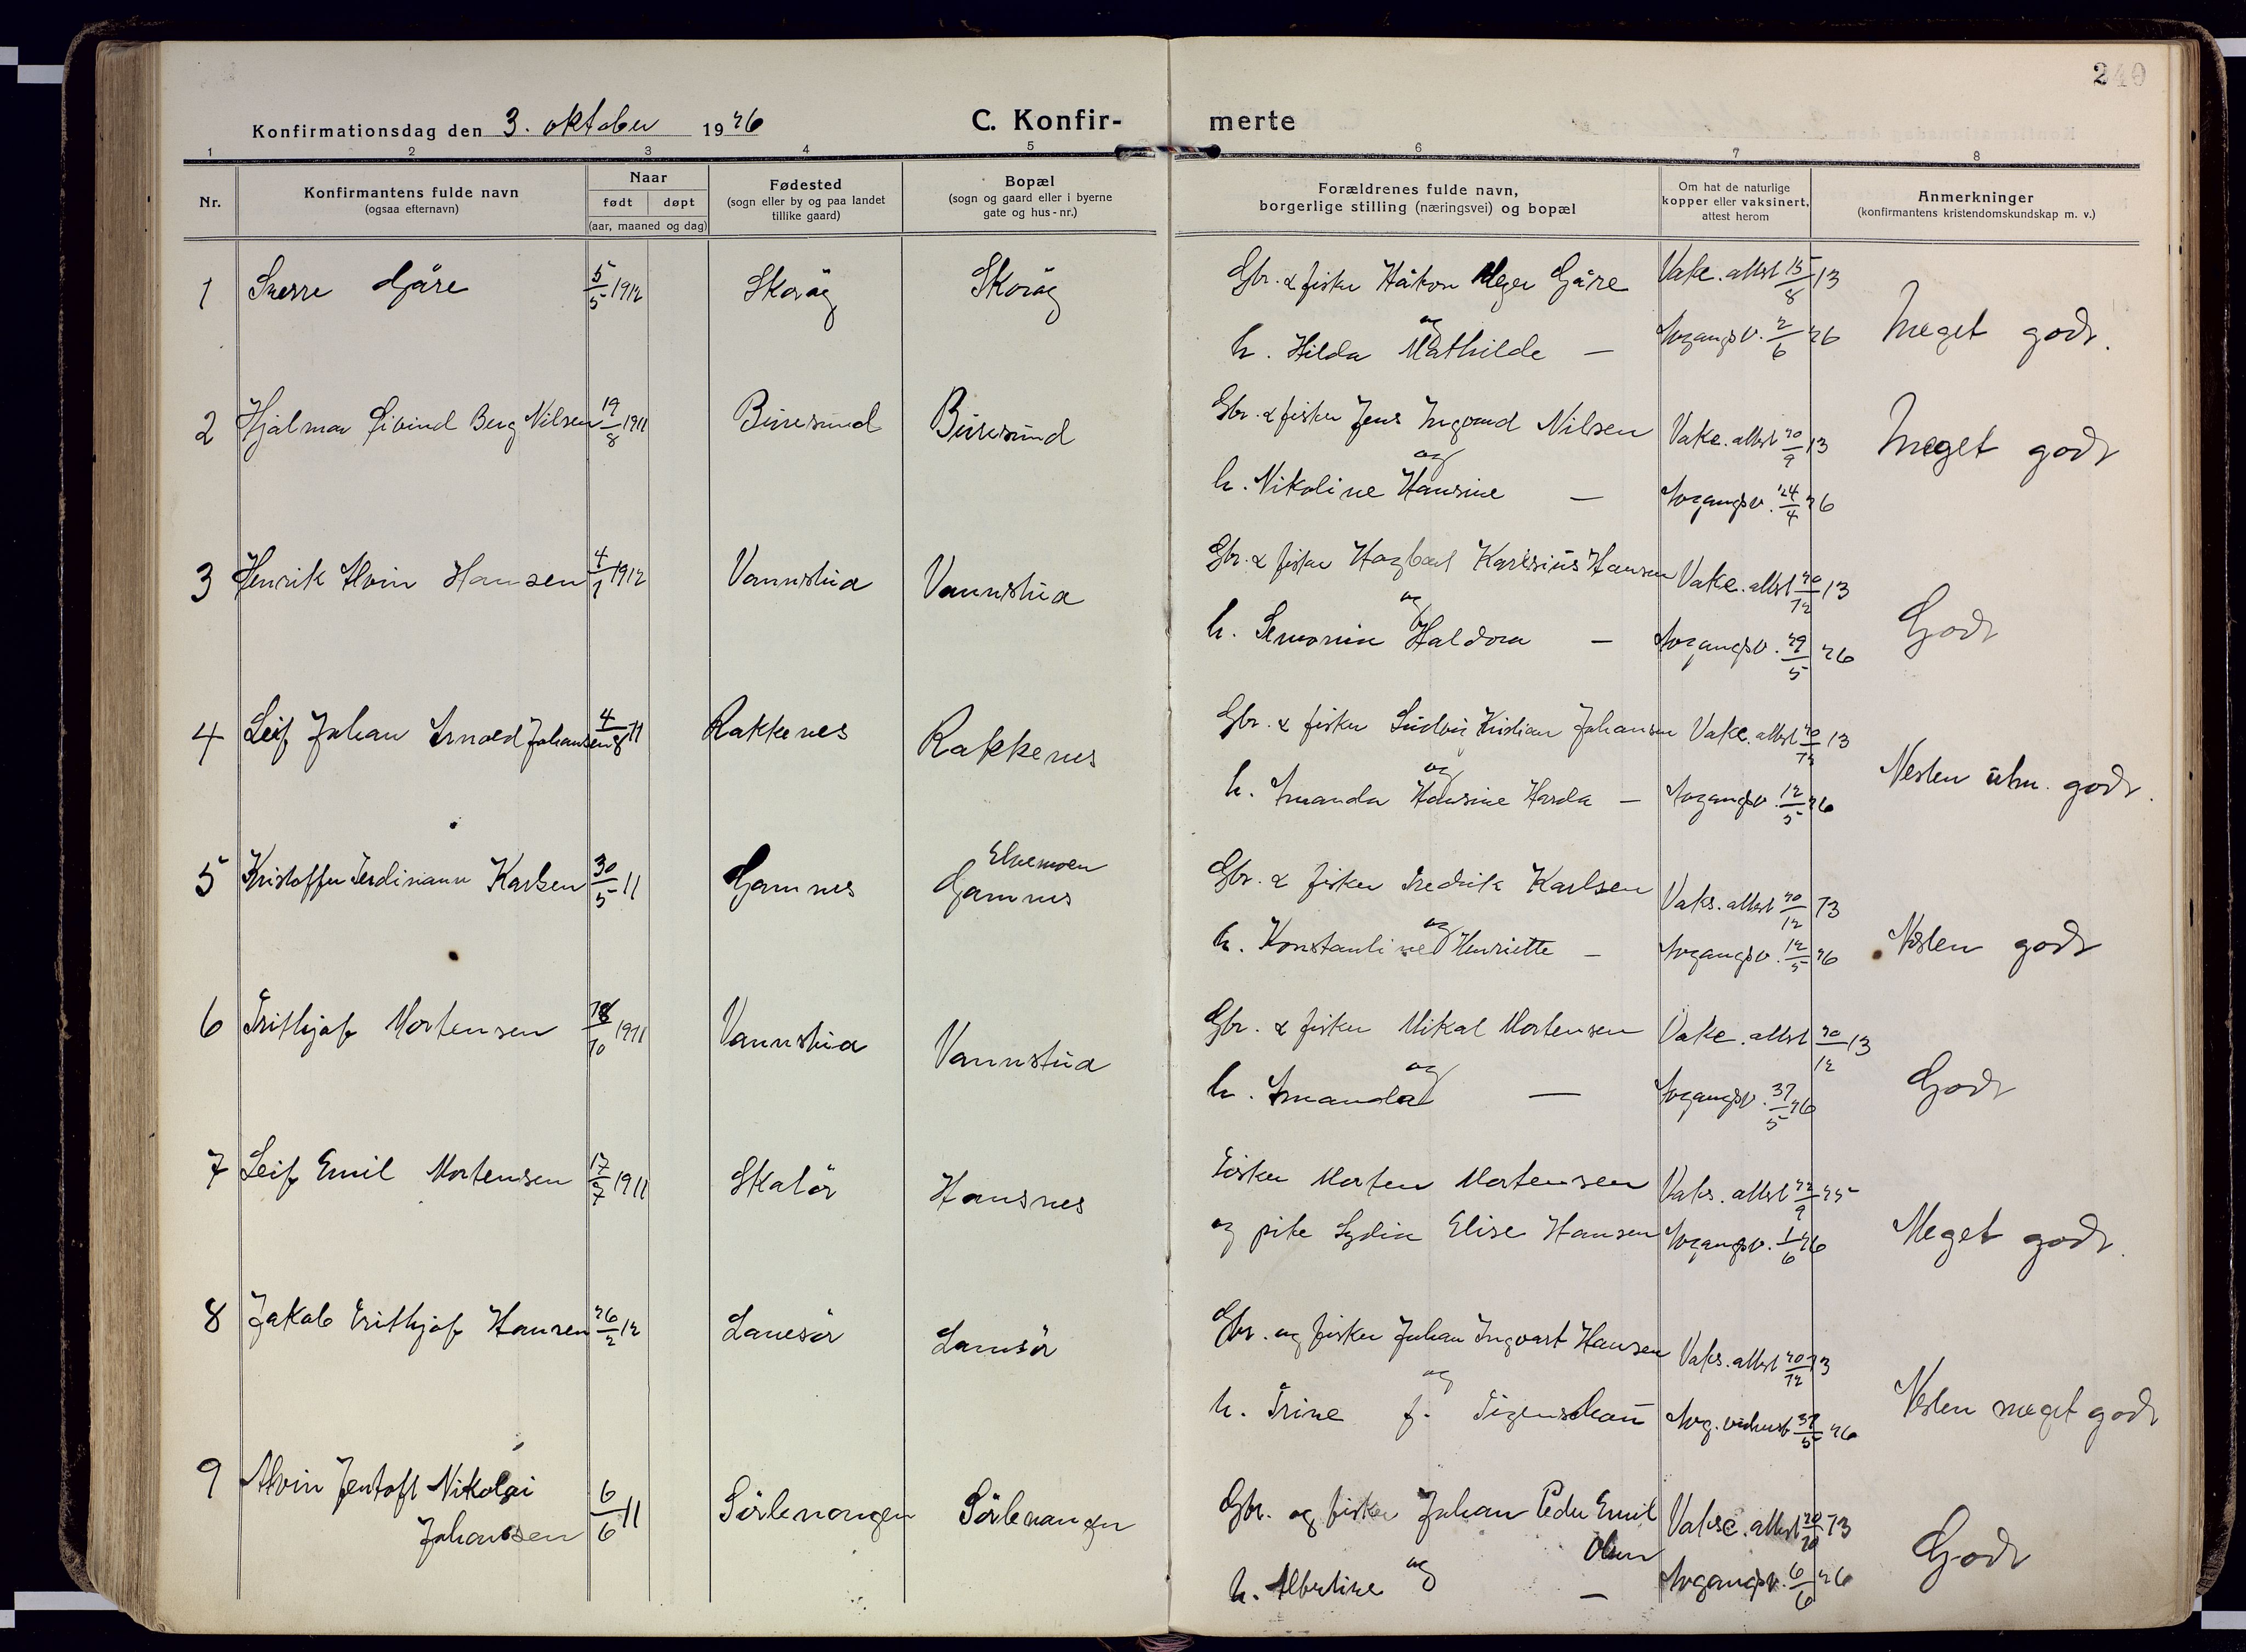 240
Konfirmationsdag den 3. oktober 1926
C. Konfir- merte
1 2 3 4 5 6 7 8
Nr.
Konfirmantens fulde navn
(ogsaa efternavn)
Naar
født døpt
(aar, maaned og dag)
Fødested
(sogn eller by og paa landet
tillike gaard)
Bopæl
(sogn og gaard eller i byerne
gate og hus-nr.)
Forældrenes fulde navn,
borgerlige stilling (næringsvei) og bopæl
Om hat de naturlige
kopper eller vaksinert,
attest herom
Anmerkninger
(konfirmantens kristendomskundskap m. v.)
1 Sverre Gåre 5/5 1912 Skoråg Skoråg Gbr. & fisker Håkon Gåre Vakc. attest 15/8 13
og
h. Hilda Mathilde — Avgangsv. 2/6 26 Meget godt.
2 Hjalmar Øivind Berg Nilsen 19/8 1911 Burøsund Burøsund Gbr. & fisker Jens Ingvard Nilsen Vakc. attest 20/9 13 Meget godt
og
h. Nikoline Hansine — Avgangsv. 24/4 26
3 Henrik Alvin Hansen 4/1 1912 Vannstua Vannstua Gbr. & fisker Hagbart Hansen Vakc. attest 20/12 13
og
h. Haldora — Avgangsv. 29/5 26 Godt
4 Leif Johan Arnold Johansen 4/8 11 Rakkenes Rakkenes Gbr. & fisker Ludvig Kristian Johansen Vakc. attest 20/12 13
og
h. Amanda Hansine Harda — Avgangsv. 12/5 26 Nesten utm. godt.
5 Kristoffer Ferdinann Karlsen 30/5 11 Gamnes Elvemoen
Gamnes Gbr. & fisker Fredrik Karlsen Vaks. attest 20/12 13
og
h. Konstantine Henriette — Avgangsv. 12/5 26 Nesten godt
6 Frithjof Mortensen 18/10 1911 Vannstua Vannstua Gbr. & fisker Mikal Mortensen Vakc. attest 20/12 13
og
h. Amanda — Avgangsv. 31/5 26 Godt
7 Leif Emil Mortensen 17/7 1911 Skatør Hansnes Fisker Morten Mortensen Vaks. attest 22/9 25
og pike Lydia Elise Hansen Avgangsv. 1/6 26 Meget godt.
8 Jakob Frithjof Hansen 26/2 12 Lanesør Lanesør Gbr. og fisker Johan Ingvart Hansen Vaks. attest 20/12 13
og
h. Trine f. Avg. vidnesb 31/5 26 Nesten meget godt
9 Alvin Jentoft Nikolai
Johansen 6/6 11 Sørlenangen Sørlenangen Gbr. og fisker Johan Peder Emil
Olsen Vaksc. attest 20/10 13
og
h. Albertine — Avgangsv. 6/6 26 Godt